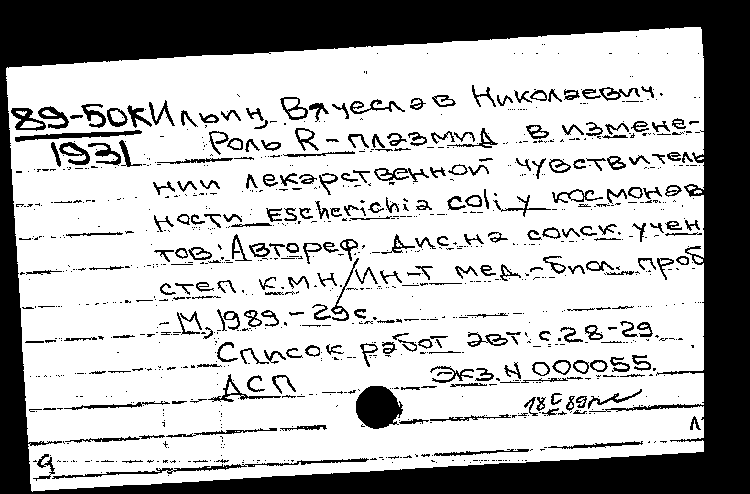 89-50К Ильин, Вячеслав Николаевич.
1931 Роль R-плазмид в измене-
нии лекарственной чувствитель
ности Escherichia coli у космонав
тов: Автореф. дис. на соиск. учен
степ. к.м.н/Ин-т мед.-биол. проб
- М, 1989. - 29 с.
Список работ авт: с. 28-29.
ДСП Экз. N 000055.
9